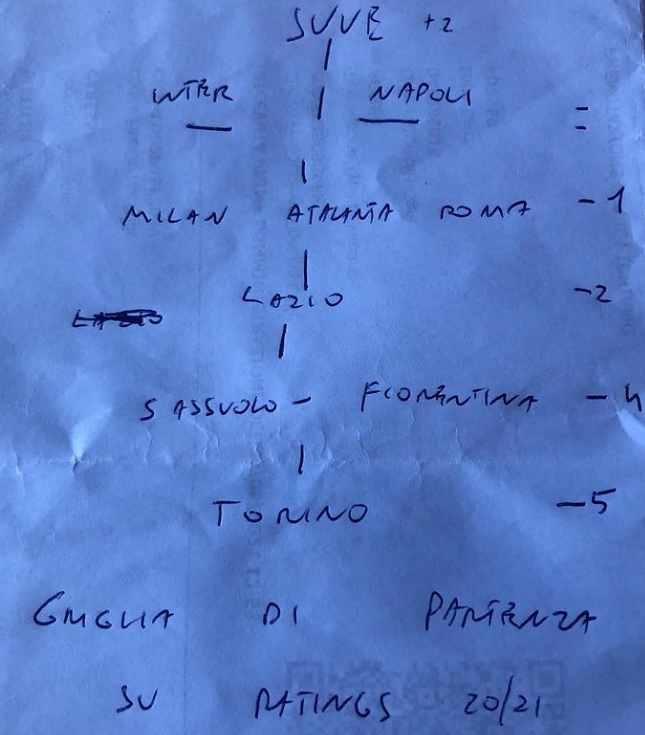 JUVE +2
INTER NAPOLI =
MILAN ATALANTA ROMA -1
LAZIO -2
LAZIO
SASSUOLO - FIORENTINA -4
TORINO -5
GRIGLIA DI PARTENZA
SU RATINGS 20/21